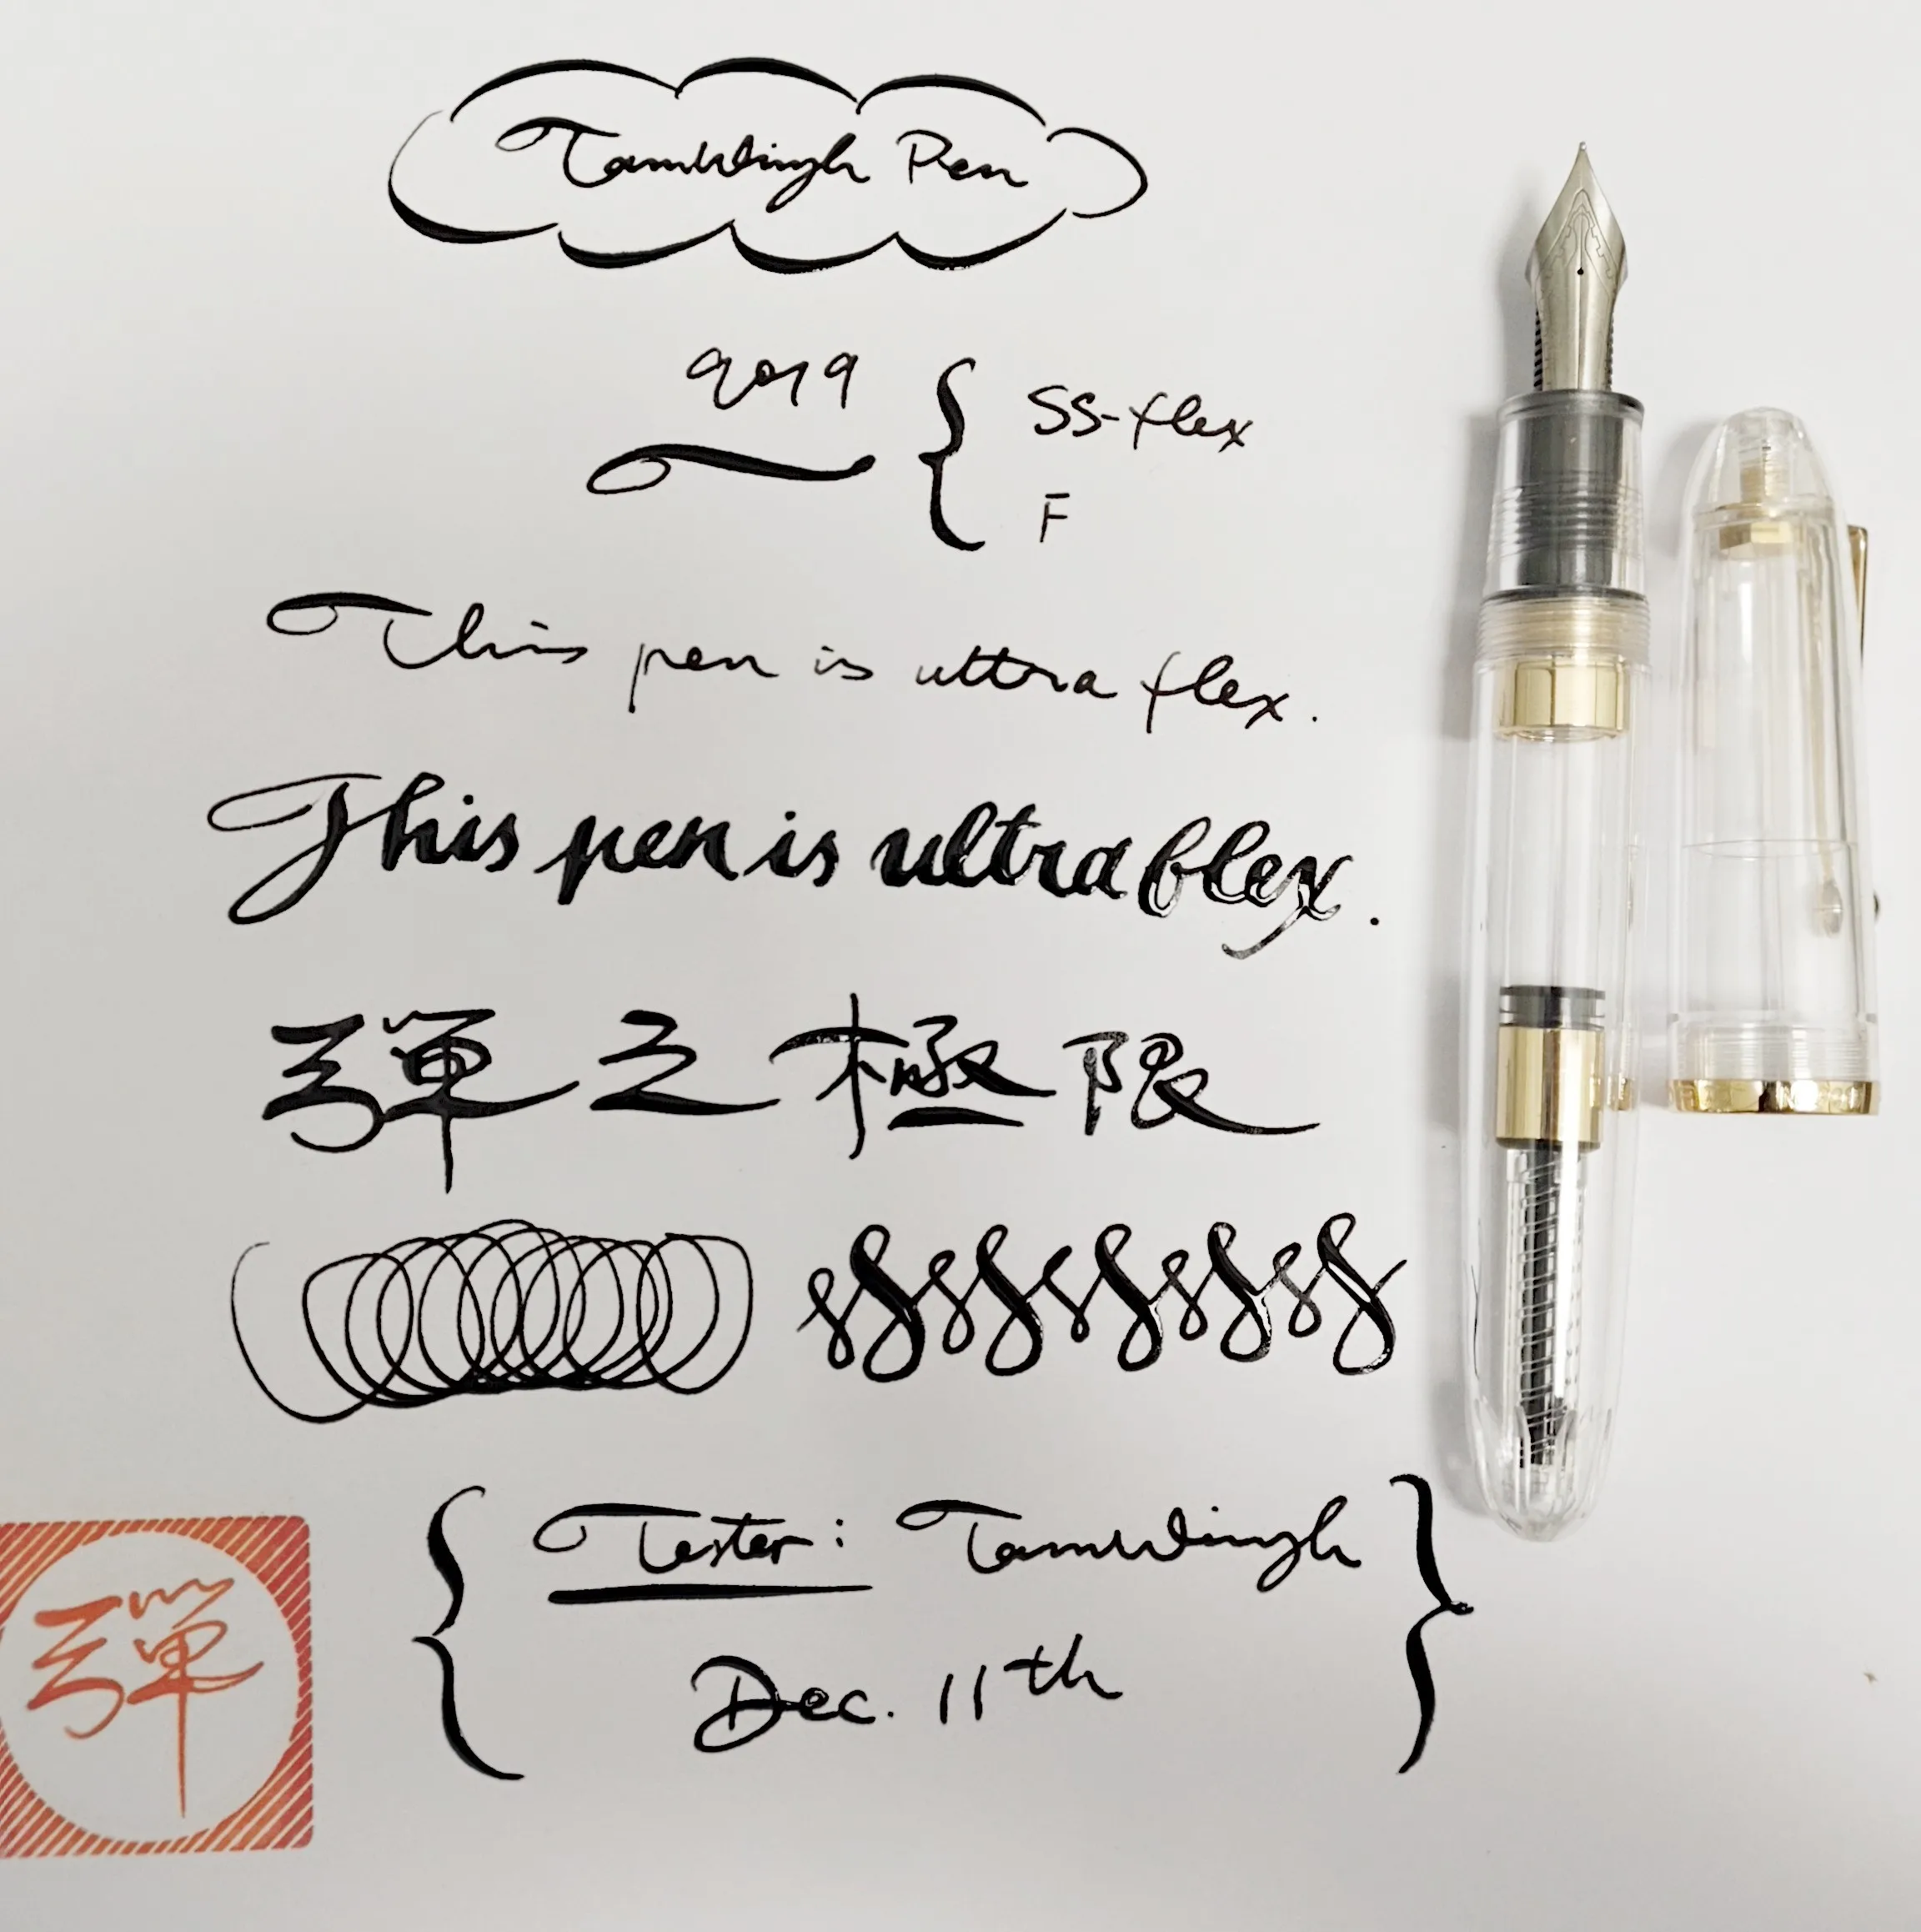 TamWingh Pen
9019 { SS-flex
F
This pen is ultra flex.
This pen is ultra flex.
彈之極限
{ Tester: TamWingh }
Dec. 11th
彈